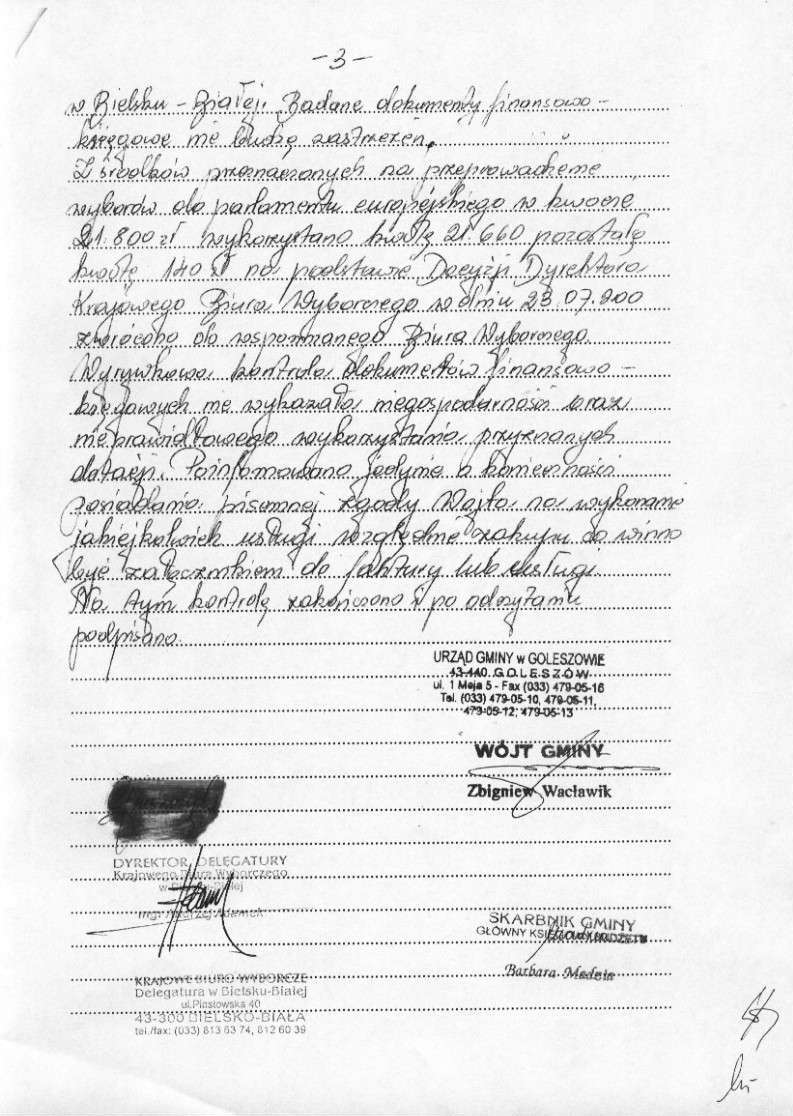 -3-
w Bielsku - Białej. Badane dokumenty finansowo -
księgowe nie budzą zastrzeżeń.
Z środków przeznaczonych na przeprowadzenie
wyborów do parlamentu europejskiego w kwocie
21.800 zł wykorzystano kwotę 21.660 pozostałą
kwotę 140 zł na podstawie Decyzji Dyrektora
Krajowego Biura Wyborczego w dniu 23.07.200
zwrócono do wspomnianego Biura Wyborczego.
Wyrywkowa kontrola dokumentów finansowo -
księgowych nie wykazała niegospodarności oraz
nieprawidłowego wykorzystania przyznanych
dotacji. Poinformowano jedynie o konieczności
posiadania pisemnej zgody Wójta na wykonanie
jakiejkolwiek usługi względnie zakupu co winno
być załącznikiem do faktury lub usługi.
Na tym kontrolę zakończono i po odczytaniu
podpisano.
URZĄD GMINY w GOLESZOWIE
43-440 GOLESZÓW
ul. 1 Maja 5 - Fax (033) 479-05-16
Tel. (033) 479-05-10, 479-05-11,
479-05-12, 479-05-13
WÓJT GMINY
Zbigniew Wacławik
DYREKTOR DELEGATURY
Krajowego Biura Wyborczego
w Bielsku-Białej
SKARBNIK GMINY
GŁÓWNY KSIĘGOWY BUDŻETU
Barbara
KRAJOWE BIURO WYBORCZE
Delegatura w Bielsku-Białej
ul.Piastowska 40
43-300 BIELSKO-BIAŁA
tel./fax: (033) 813 63 74, 812 60 39